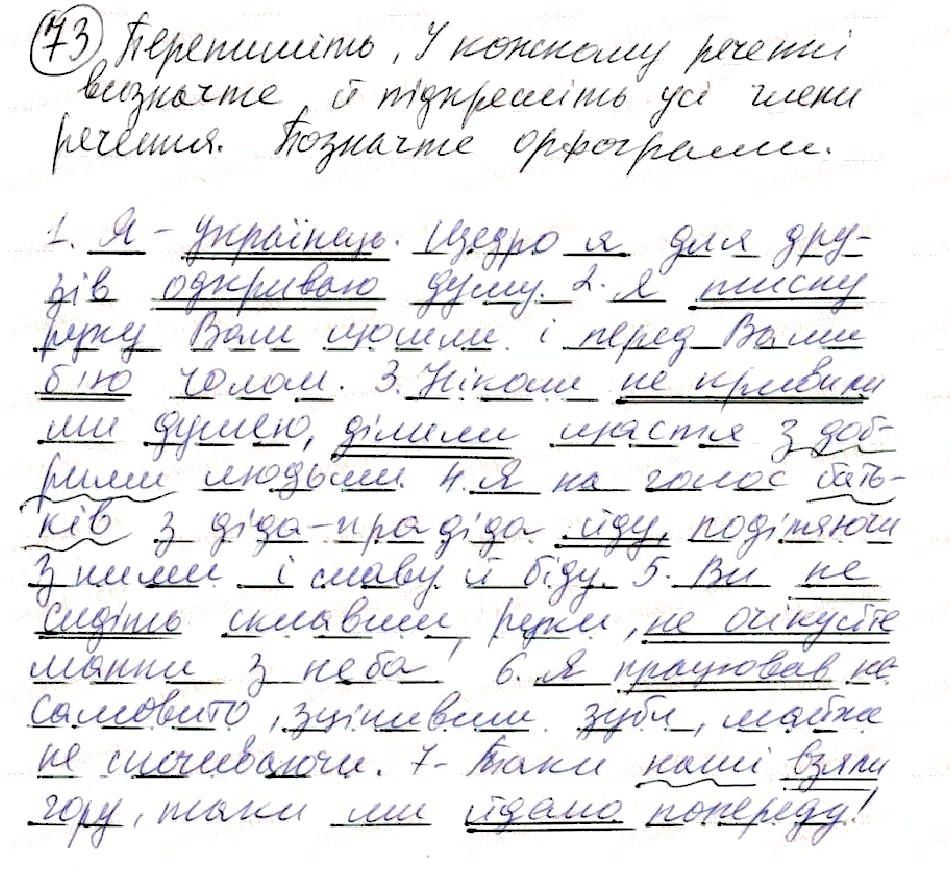 73 Перепишіть. У кожному реченні
визначте й підкресліть усі члени
речення. Позначте орфограми.
1. Я - українець. Щедро я для дру-
зів одкриваю душу. 2. Я тисну
руку Вам щомли і перед Вами
б'ю чолом. 3. Ніколи не кривили
ми душею, ділили щастя з доб-
рими людьми. 4. Я на голос бать-
ків з діда-прадіда йду, поділяючи
з ними і славу й біду. 5. Ви не
сидіть склавши руки, не очікуйте
манни з неба! 6. Я працював не
самовито, зціпивши зуби, майже
не спочиваючи. 7- Таки наші взяли
гору, таки ми йдемо попереду!